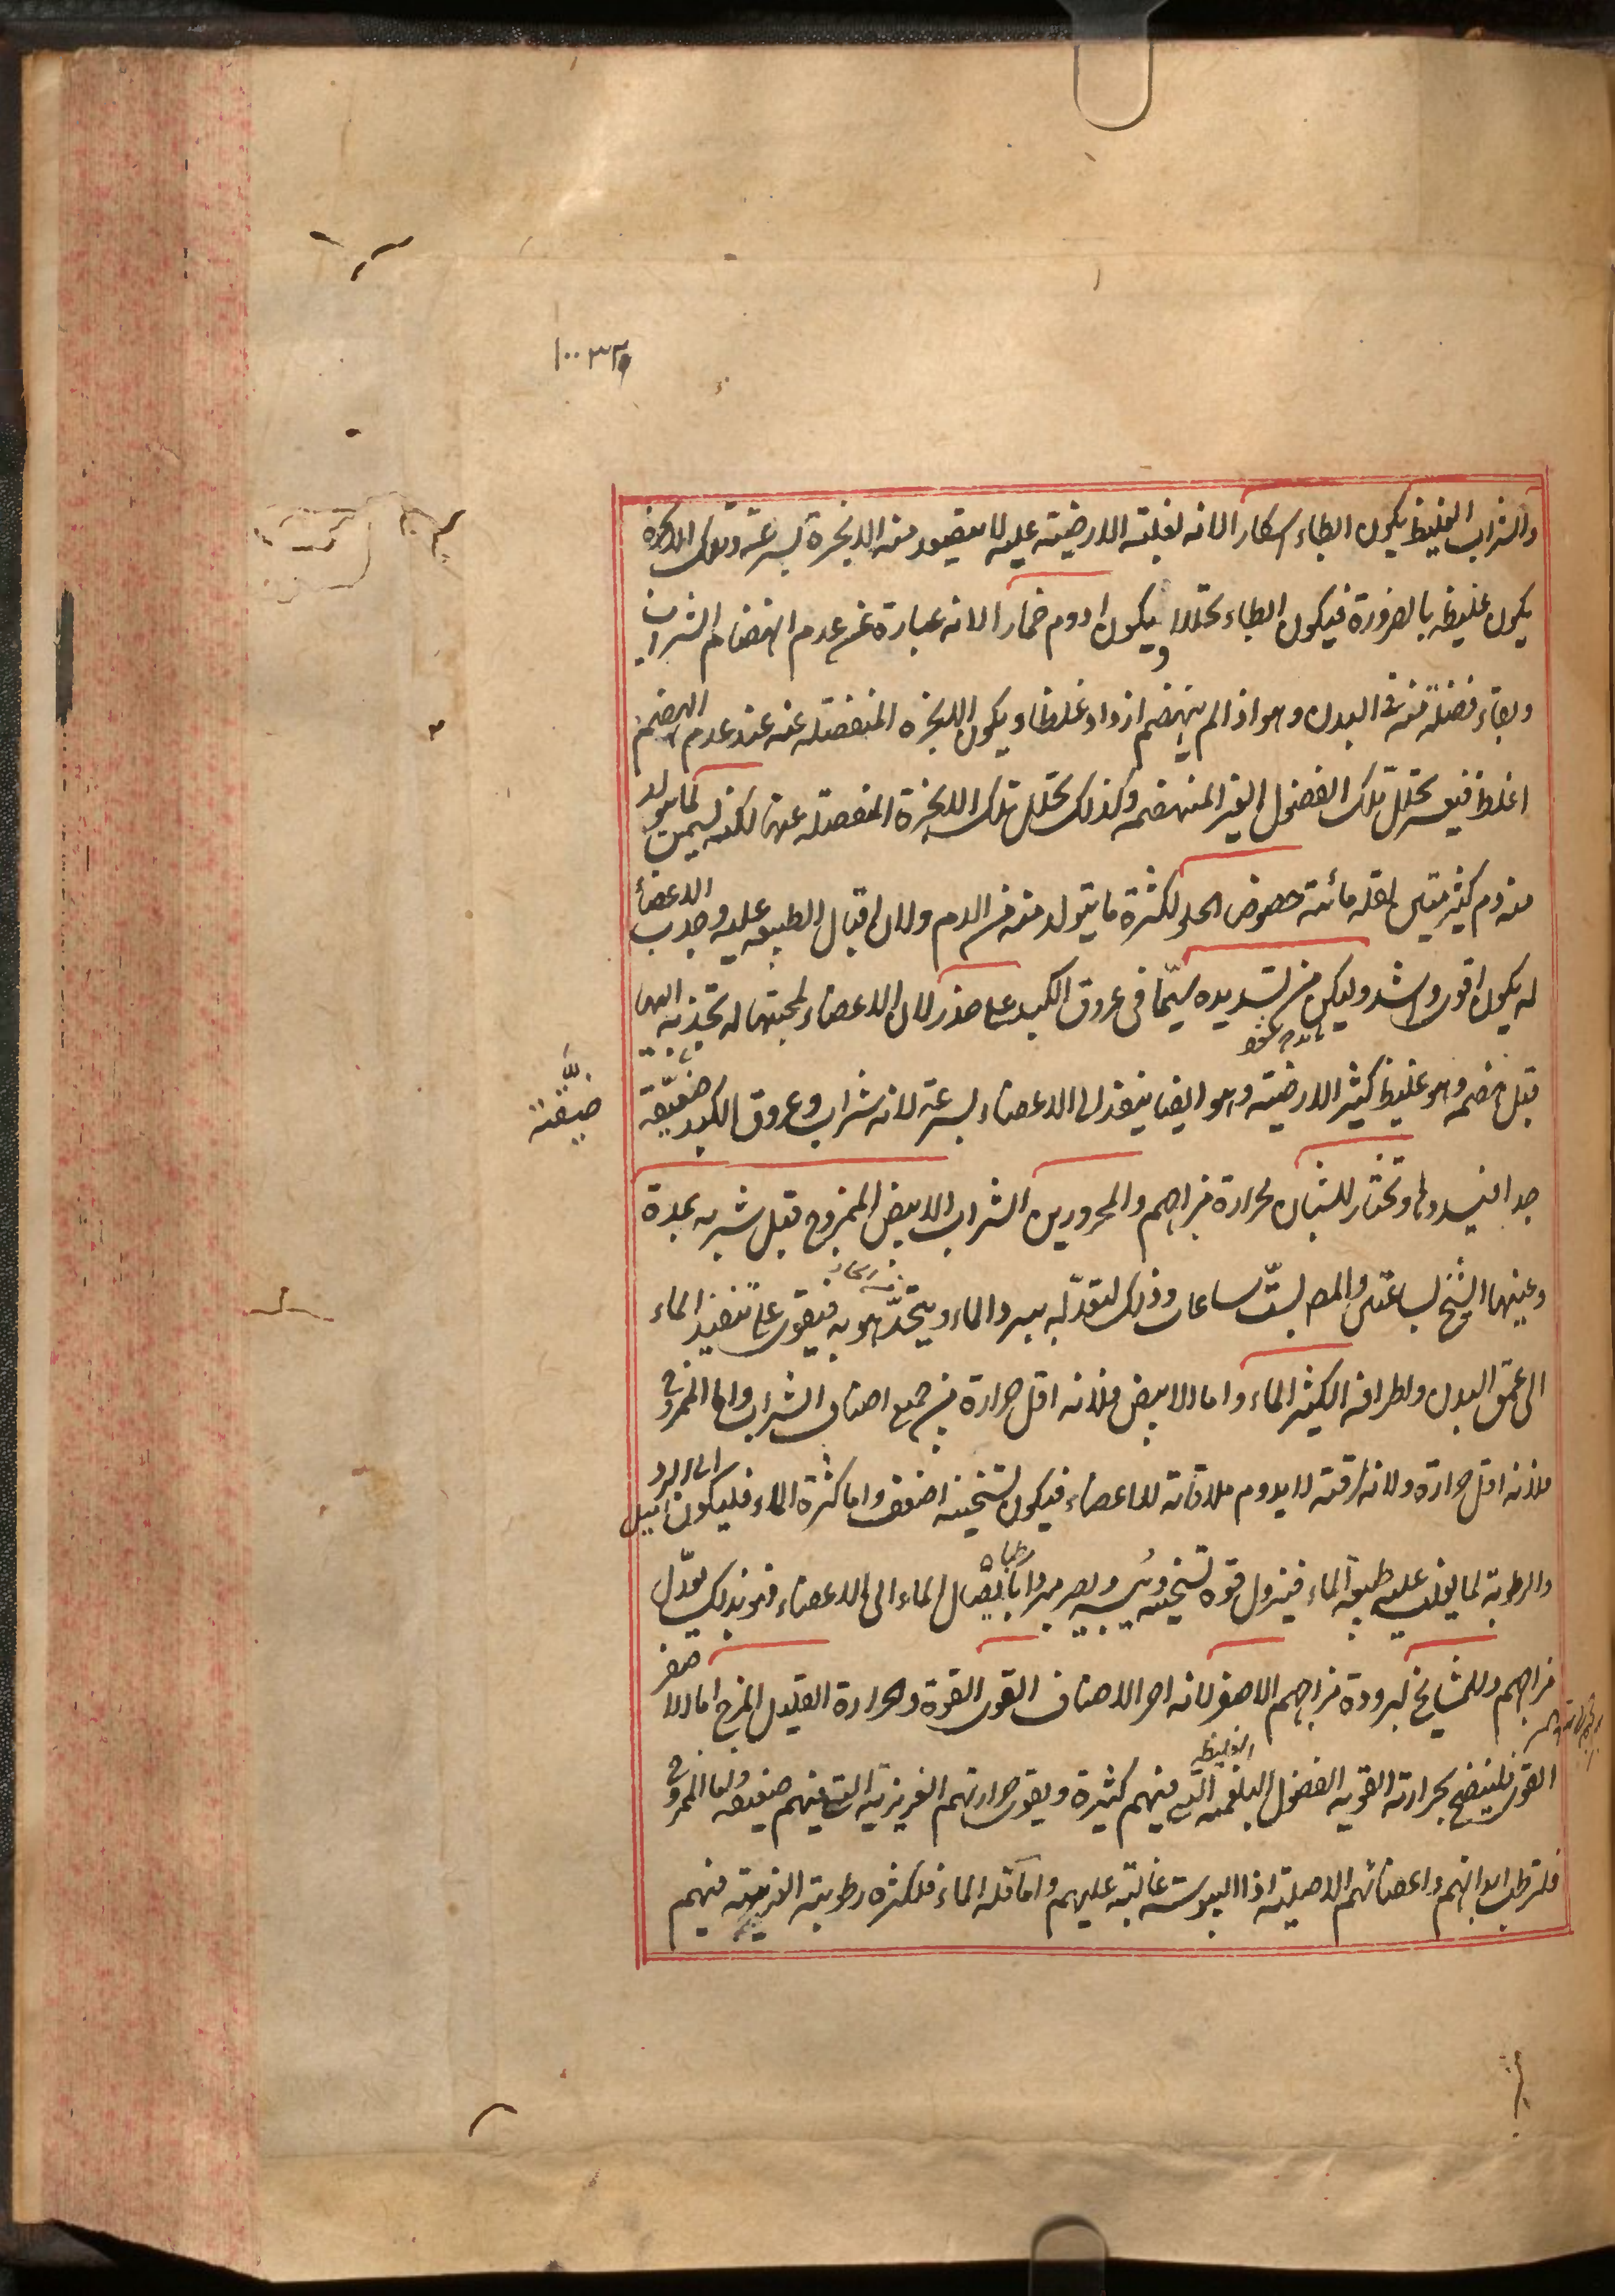 والشراب الغليظ يكون ابطاء اسكارا لانه لغلبة الارضية عليه لا يتصعد منه الابخرة بسرعة وتلك الابخرة
يكون غليظه بالضرورة فيكون ابطاء تحللا ويكون ادوم خمارا لانه عبارة عن عدم انهضام الشراب
وبقاء فضلة منه فى البدن وهو اذا لم ينهضم ازداد غلظا ويكون الابخرة المنفصله عنه عند عدم الهضم
اغلظ فيعسر تحلل تلك الفضول الغير المنهضمه وكذلك تحلل تلك الابخرة المنفصله عنها لكنه يسمن لما يتولد
منه دم كثير متين لقلة مائيته خصوص الحلو لكثرة ما يتولد منه من الدم ولان اقبال الطبيعه عليه وجذب الاعضأ
له يكون اقوى واشد وليكن من تسديده سيّما فى عروق الكبد على حذر لان الاعضاء لمحبتها له تجذبه اليها
قبل هضمه وهو غليظ كثير الارضيته وهو ايضا ينفذ الى الاعضاء بسرعة لانه شراب وعروق الكبد ضيّقة
ضيّقة
جدا فيسدها وتختار للشبان لحرارة مزاجهم والمحرورين الشراب الابيض الممزوج قبل شربه بمدة
وعينها الشيخ بساعتين والمص بستّ ساعات وذلك لتعدّله ببرد الماء ويتحدّ هو به فيقوى على تنفيذ الماء
الى عمق البدن واطرافه الكثير الماء واما الابيض فلانه اقل حرارة من جميع اصناف الشراب واما الممزوج
فلانه اقل حرارة ولانه لرقته لا يدوم ملاقاته للاعضاء فيكون تسخينه اضعف واما كثرة الماء فليكون اميل الى البرد
والرطوبة لما يغلب عليه طبيعة الماء فيزول قوة تسخينه ويبسه ويصير مبردا بايصال الماء الى الاعضاء فهو بذلك يعدّل
مزاجهم وللمشايخ لبرودة مزاجهم الاصفر لانه احر الاصناف القوى القوة والحرارة القليل المزج اما الاصفر
القوى فلينضج بحرارته القويه الفضول البلغميه الغليظه التى فيهم كثيرة ويقوى حرارتهم الغريزية التى فيهم ضعيفه واما الممزوج
فلترطب ابدانهم واعضائهم الاصلية اذ اليبوسة غالبة عليهم واما قلة الماء فلكثرة رطوبته الغريبته فيهم